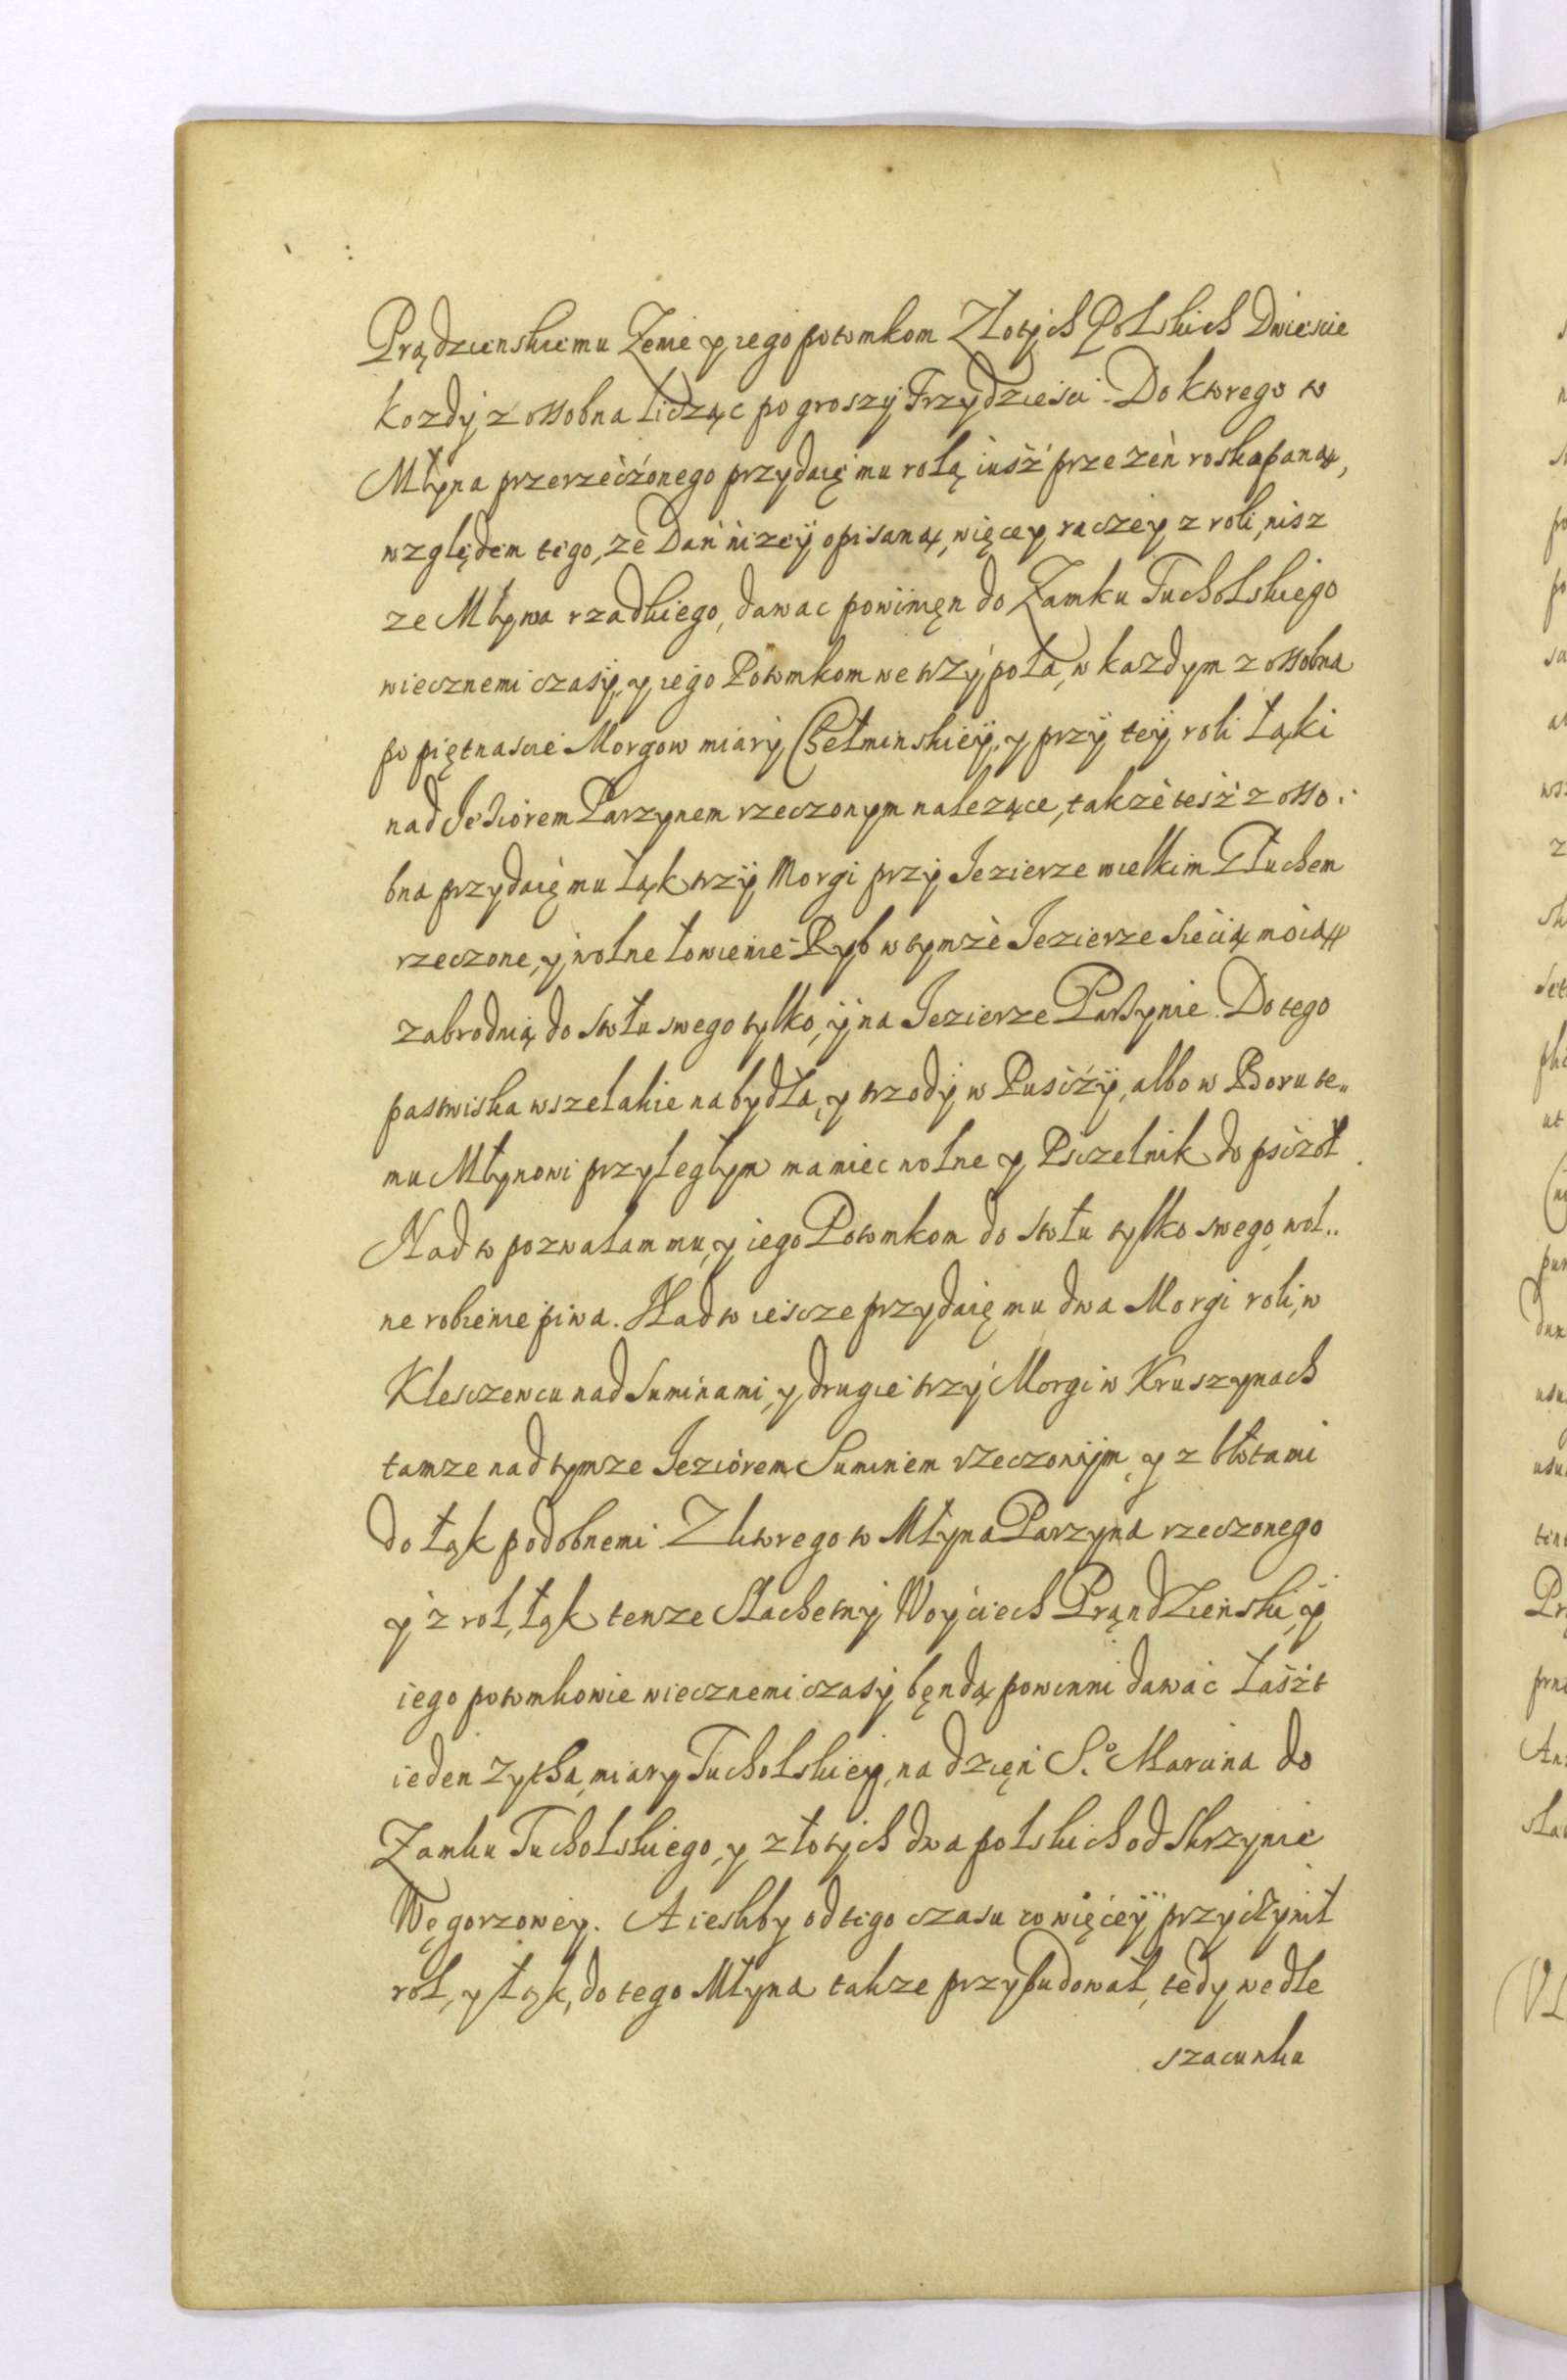 Prądzienskiemu Zenie y iego potomkom Złotych Polskich Dwiescie
kozdy z ossobna licząc po groszy Trzydziesci. Do ktorego to
Młyna przerzeczonego przydaię mu rolą iusz przezen roskopaną,
względem tego, ze Dań nizey opisaną, więcey raczey z roli, nisz
ze Młyna rzadkiego, dawac powinięn do Zamku Tucholskiego
wiecznemi czasy, y iego Potomkom we trzy pola, w kazdym z ossobna
po piętnascie Morgow miary Chełminskiey, y przy tey roli łąki
nad Jeziorem Parzynem rzeczonym nalezące, takze tesz z osso-
bna przydaię mu łąk trzy Morgi przy Jezierze wielkim Głuchem
rzeczone, y wolne łowienie Ryb w tymze Jezierze siecią mnieiszą
zabrodnią do stołu swego tylko, y na Jezierze Parzynie. Do tego
pastwiska wszelakie na bydła, y trzody w Pusczy, albo w Boru te„
mu Młynowi przyległym ma miec wolne y Psczelnik do psczoł.
Nad to pozwalam mu, y iego Potomkom do stołu tylko swego, wol„
ne robienie piwa. Nad to iescze przydaię mu dwa Morgi roli, w
Klesczewcu nad Suminami, y drugie trzy Morgi w Kruszynach
tamze nad tymze Jeziorem Suminem rzeczonym, y z błotami
do łąk podobnemi. Z ktorego to Młyna Parzyna rzeczonego
y z rol, łąk tenze Slachetny Woyciech Prąndzienski, y
iego potomkowie wiecznemi czasy będą powinni dawać łaszt
ieden zytha, miary Tucholskiey, na dzięn S.º Marcina do
Zamku Tucholskiego, y złotych dwa polskich od Skrzynie
Węgorzowey. A ieslby od tego czasu co więcey przyczynił
rol, y łąk, do tego Młyna takze przybudował, tedy wedle
szacunku